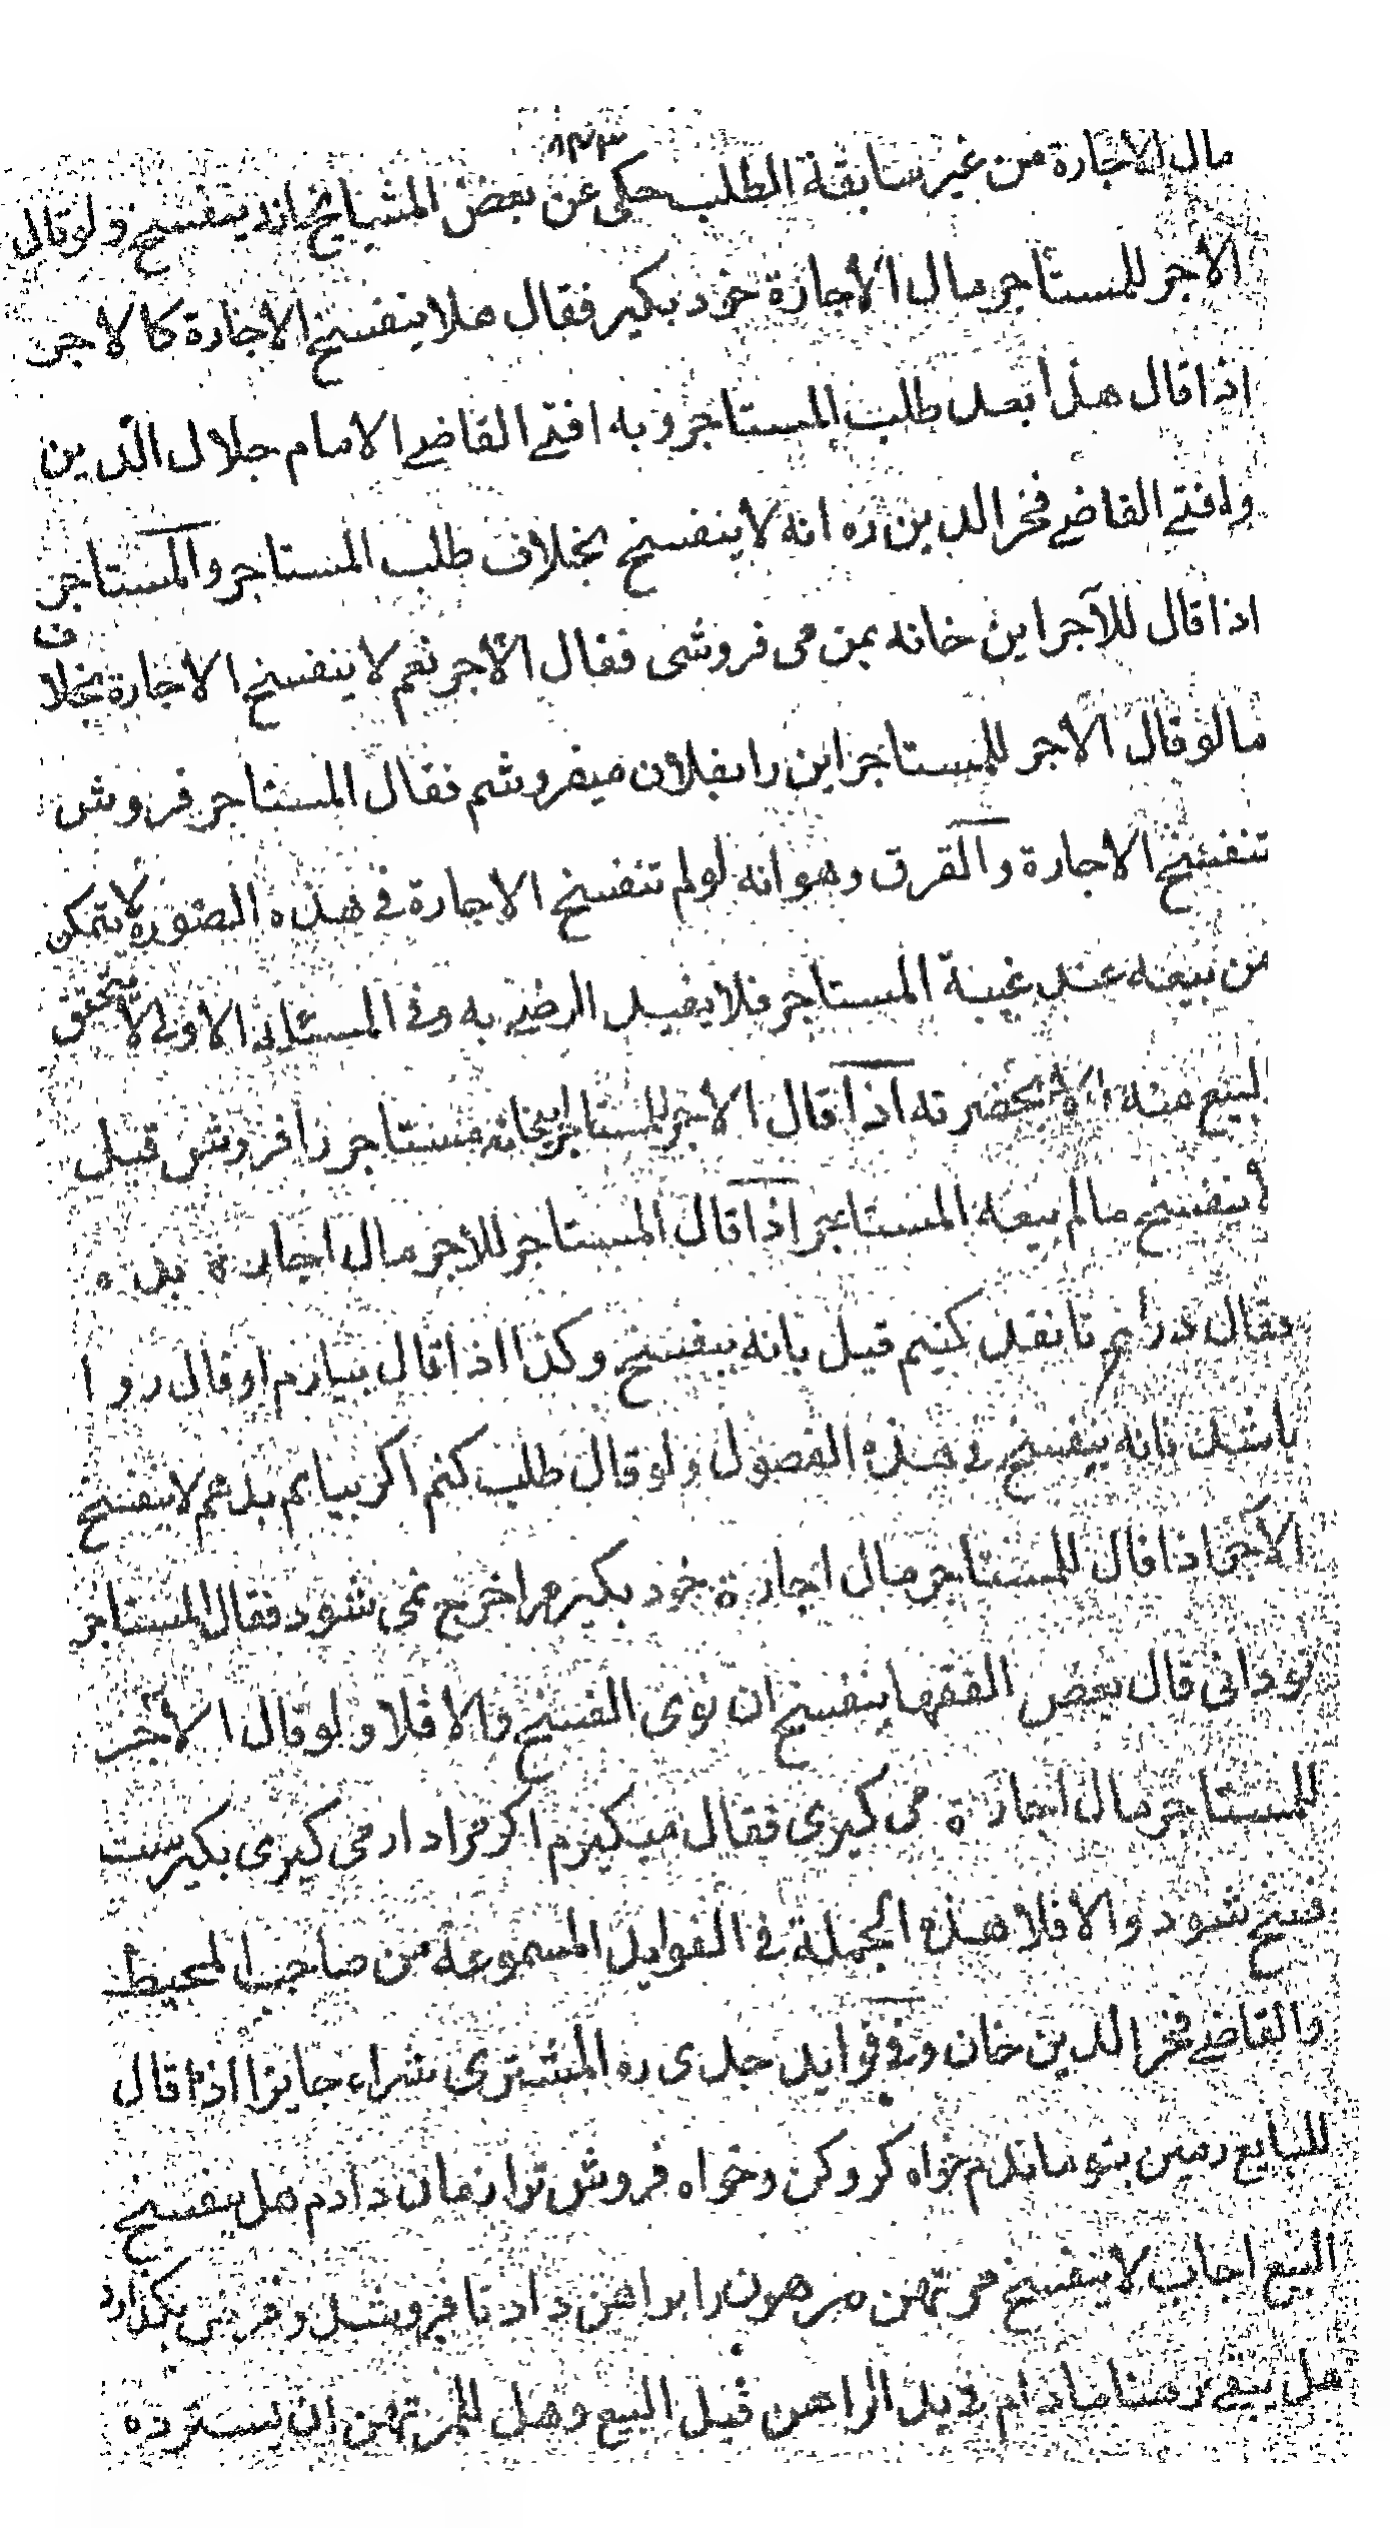 ٨٣٣
مال الاجارة من غير سابقة الطلب حكى عن بعض المشايخ انه ينفسخ ولو قال
الآجر للمستاجر مال الاجارة خود بكير فقال هلا ينفسخ الاجارة كالاجر
اذا قال هذا بعد طلب المستاجر وبه افتى القاضي الامام جلال الدين
وافتى القاضي فخر الدين ره انه لا ينفسخ بخلاف طلب المستاجر والمستاجر
اذا قال للآجر اين خانه بمن مى فروشى فقال الآجر نعم لا ينفسخ الاجارة بخلاف
ما لو قال الآجر للمستاجر اين را بفلان ميفروشم فقال المستاجر فروش
تنفسخ الاجارة والفرق وهو انه لو لم تنفسخ الاجارة في هذه الصورة لا يتمكن
من بيعه عند غيبة المستاجر فلا يفيد الرضي به وفي المسئلة الاولى لا يتحقق
البيع منه الا بحضرته اذا قال الآجر للمستاجر اينخانه مستاجر را فروش قبل
لا ينفسخ مالم يبعه المستاجر اذا قال المستاجر للآجر مال اجارة بده
فقال درايم تا نقد كنيم قيل بانه ينفسخ وكذا اذا قال بيارم او قال روا
باشد بانه ينفسخ في هذه الفصول ولو قال طلب كنم اكر بيابم بدهم لا ينفسخ
الآجر اذا قال للمستاجر مال اجارة خود بكير مرا خرج نمى شود فقال المستاجر
تو دانى قال بعض الفقها ينفسخ ان نوى الفسخ والا فلا ولو قال الآجر
للمستاجر مال اجارة مى كيرى فقال ميكيرم اكر مراد از مى كيرى بكير ست
فسخ شود والا فلا هذه الجملة في الفوايد المسموعة من صاحب المحيط
والقاضي فخر الدين خان وفي فوايد جدى ره المشترى شراء جايزا اذا قال
للبايع زمين بتو ماندم خواه كرو كن وخواه فروش ترا زمان دادم هل ينفسخ
البيع اجاب لا ينفسخ مرتهن مرهون را براهن داد تا فروشد و قرض بكذارد
هل يبقى رهنا مادام في يد الراهن قبل البيع وهل للمرتهن ان يسترده